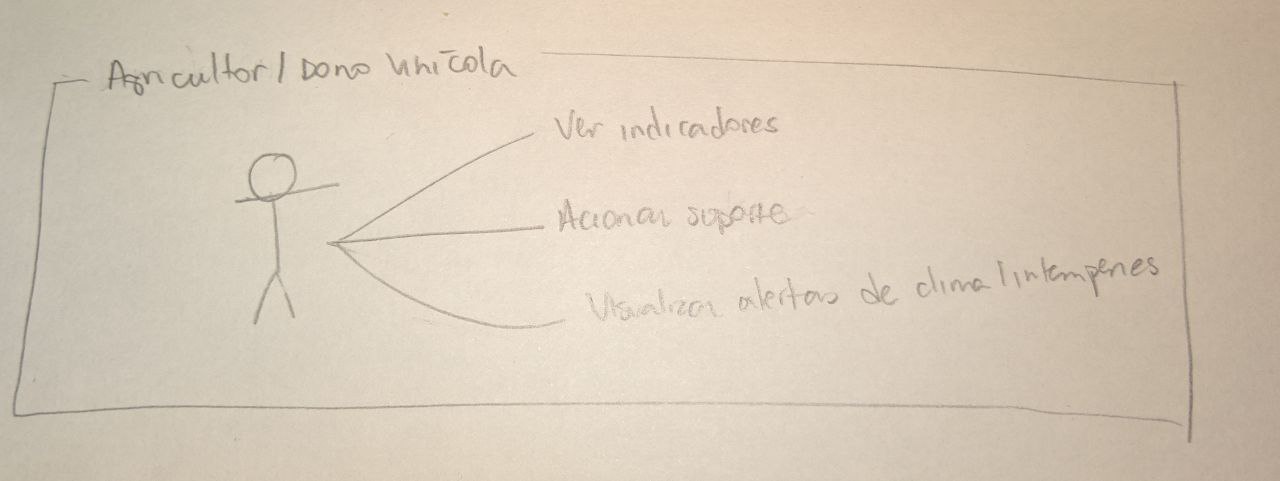 Agricultor / Dono vinícola
Ver indicadores
Acionar suporte
Visualizar alertas de clima / intempéries